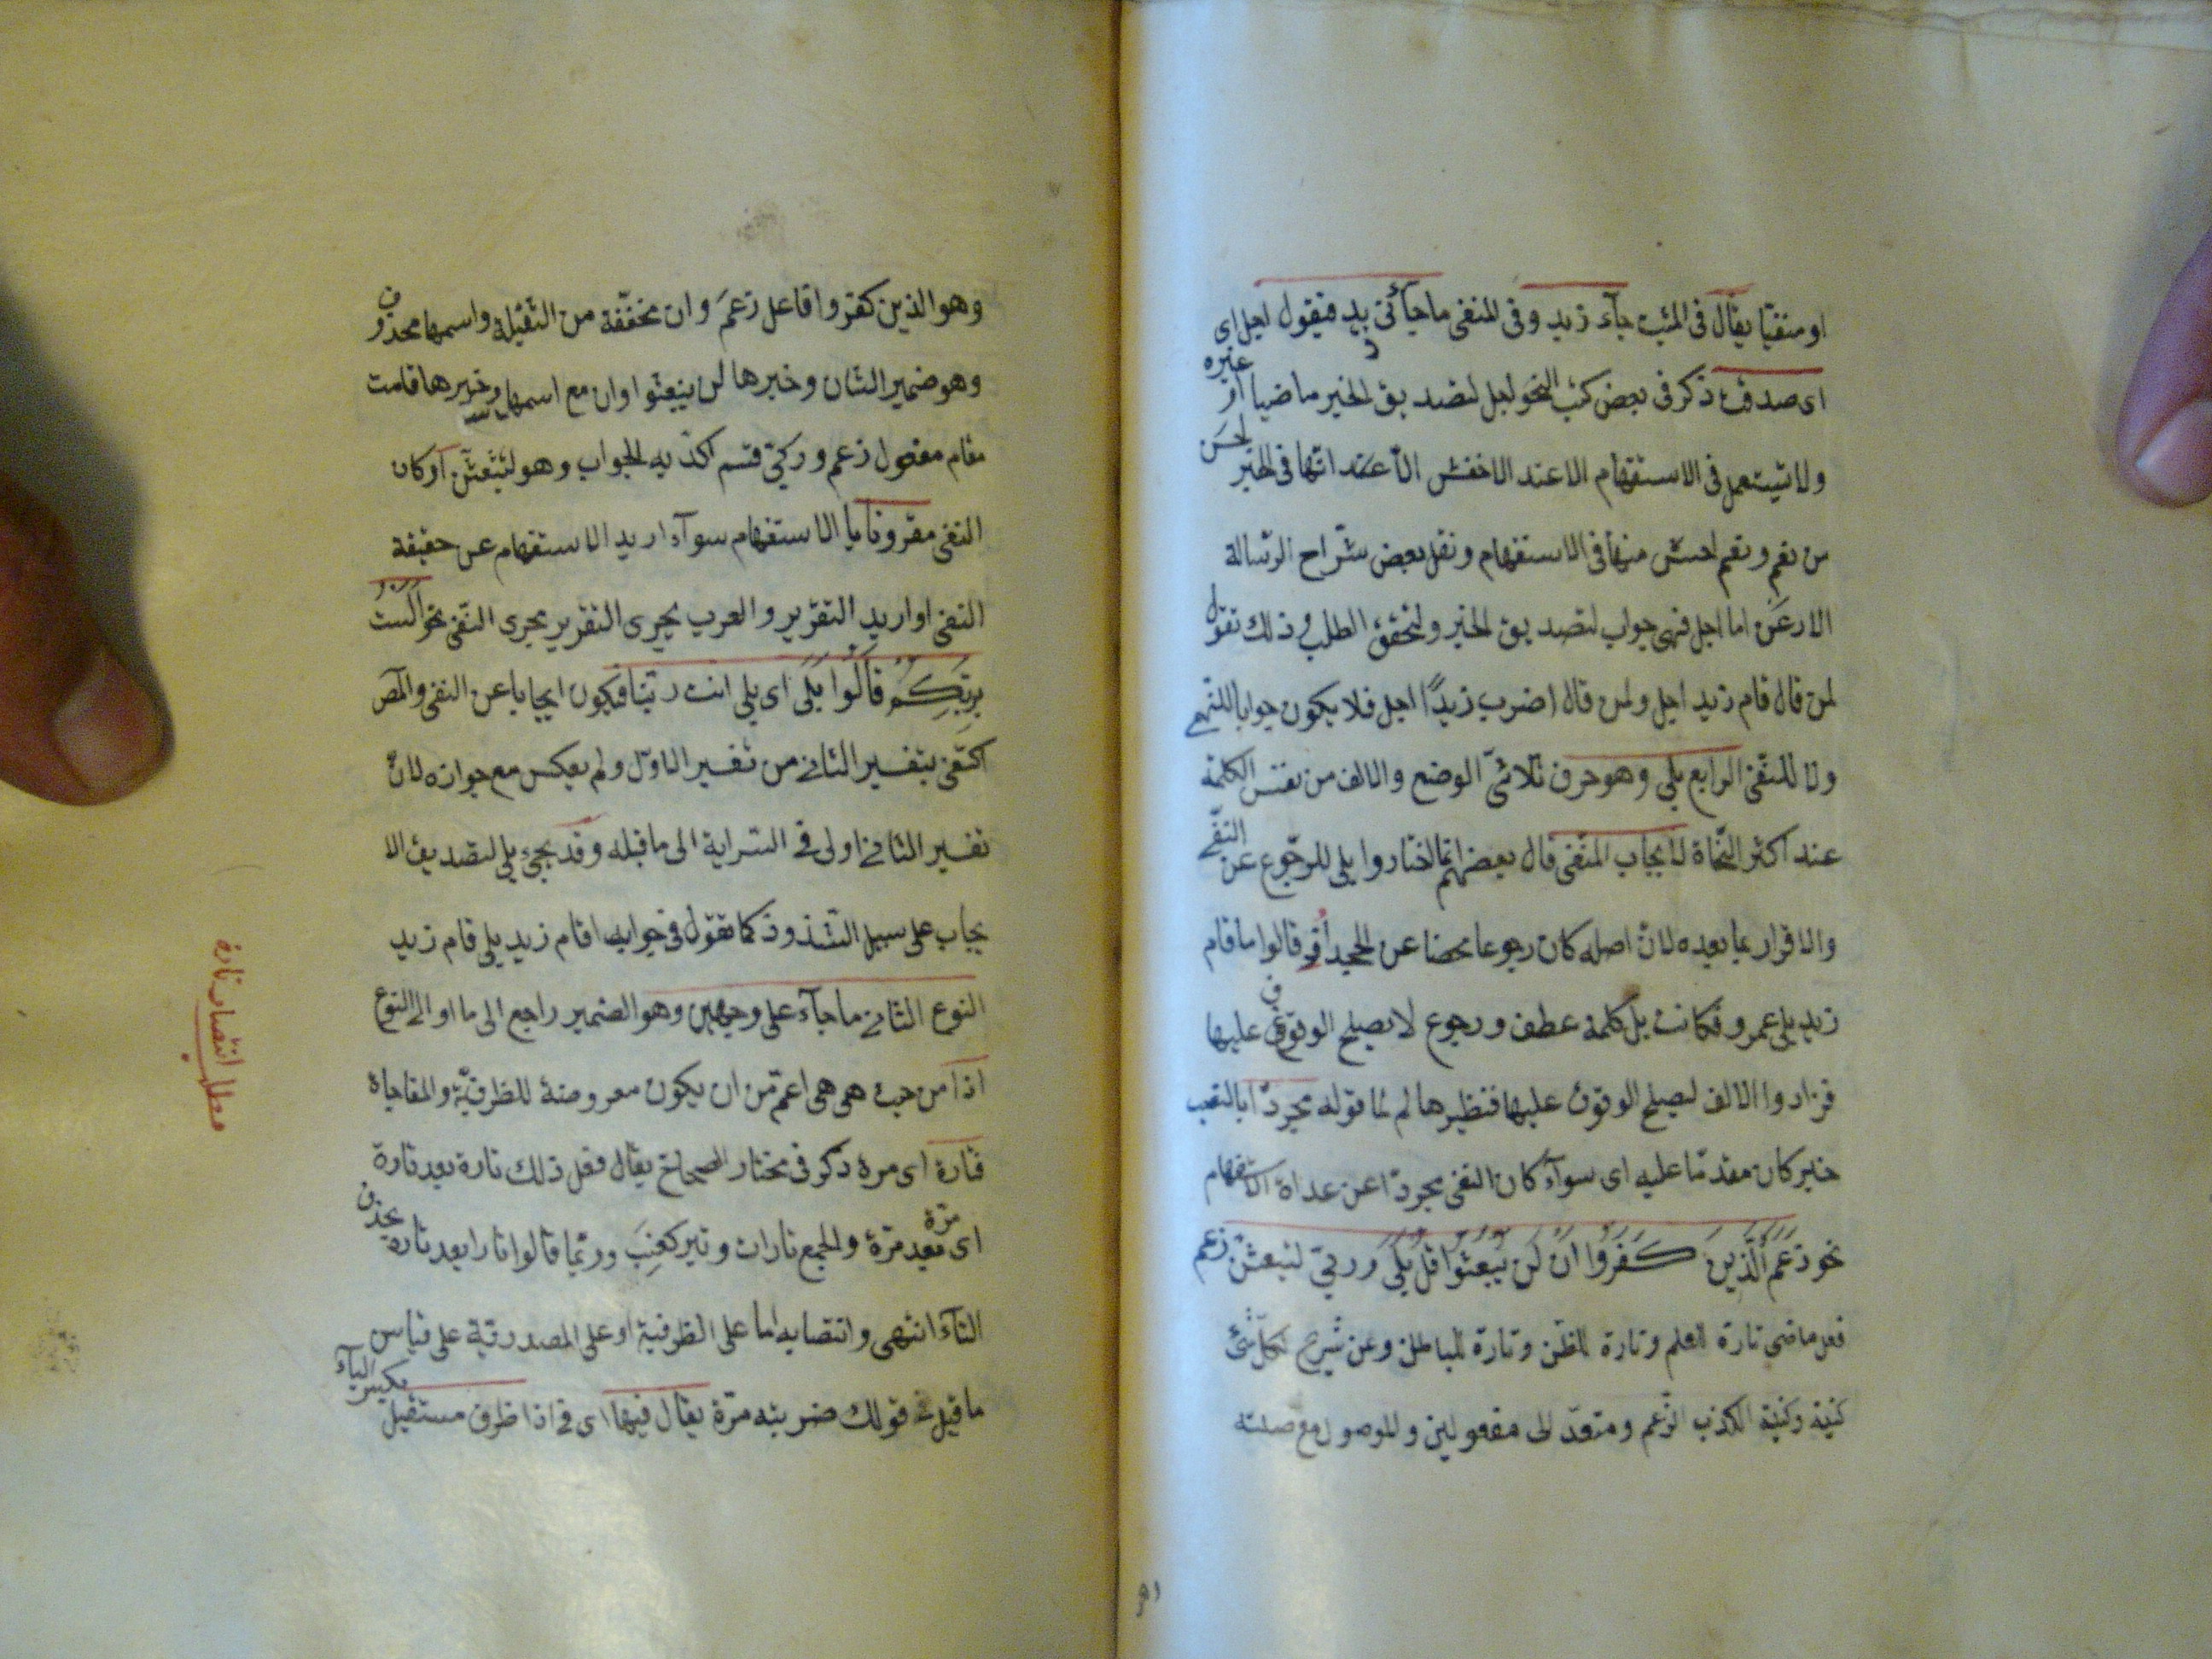 او منفيّا يقال فى المثبت جآء زيد وفى المنفى ما جآئنى زيد فيقول اجل اى
اى صدقت ذكر فى بعض كتب النحو اجل لتصديق الخبر ماضيا او غيره
ولا تستعمل فى الاستفهام الا عند الاخفش الا عنده انها فى الخبر احسن
من نعم ونعم احسن منها فى الاستفهام ونقل بعض شرّاح الرسالة
الارعن اما اجل فهى جواب لتصديق الخبر ولتحقق الطلب وذلك تقول
لمن قال قام زيد اجل ولمن قال اضرب زيدًا اجل فلا يكون جوابا للنهى
ولا للنفى الرابع بلى وهو حرف ثلاثىّ الوضع والالف من نفس الكلمة
عند اكثر النحاة لايجاب المنفى قال بعضهم انما اختاروا بلى للرجوع عن النفى
والاقرار بما بعده لان اصله كان رجوعا محضا عن الجحد قالوا ما قام
زيد بل عمرو فكانت بل كلمة عطف ورجوع لا يصلح الوقوف عليها
فزادوا الالف ليصلح الوقوف عليها فنظيرها لم لما قوله مجردّا بالنصب
خبر كان مقدمّا عليه اى سوآء كان النفى مجردّا عن عداة الاستفهام
نحو زَعَمَ الَّذِينَ كَفَرُوا اَنْ لَنْ يُبْعَثُوا قُلْ بَلَى وَرَبِّى لتبعثنّ زعم
فعل ماضى تارة للعلم وتارة للظنّ وتارة للباطل وعن شريح لكلّ شئ
كنية وكنية الكذب الزّعم ومتعدّ الى مفعولين والموصول مع صلته
وهو الذين كفروا فاعل زعمَ وان مخففّة من الثقيلة واسمها محذوف
وهو ضمير الشان وخبرها لن يبعثوا وان مع اسمها وخبرها قامت
مقام مفعول زعم وربّى قسم اكدّ به الجواب وهو لتبعثنّ او كان
النفى مقرونا بالاستفهام سوآء اريد الاستفهام عن حقيقة
النفى او اريد التقرير والعرب يجرى التقرير مجرى النّفى نحو اَلَسْتُ
بِرَبِّكُمْ قَالُوا بَلَى اى بلى انت ربّنا فيكون ايجابا عن النفى والمص
اكتفى بتفسير الثانى من تفسير الاوّل ولم يعكس مع جوازه لانّ
تفسير الثانى اولى فى السراية الى ما قبله وقد يجئ بلى لتصديق الا
يجاب على سبيل الشذوذ كما تقول فى جوابه اقام زيد بلى قام زيد
النوع الثانى ما جآء على وجهين وهو الضمير راجع الى ما او الى النوع
اذا من حيث هى هى اعمّ من ان يكون معروضة للظرفيّة والمفاجاة
فتارة اى مرة ذكر فى مختار الصحاح يقال فعل ذلك تارة بعد تارة
اى مرّة بعد مرّة والجمع تارات وتير كعِنَب وربّما قالوا تارا بعد تاره بحذف
التآء انتهى وانتصابه اما على الظرفية او على المصدريّة على قياس
ما قيل فى قولك ضربته مرّة يقال فيها اى فى اذا ظرف مستقبل بكسر البآء
مطلب انتصاب تارة